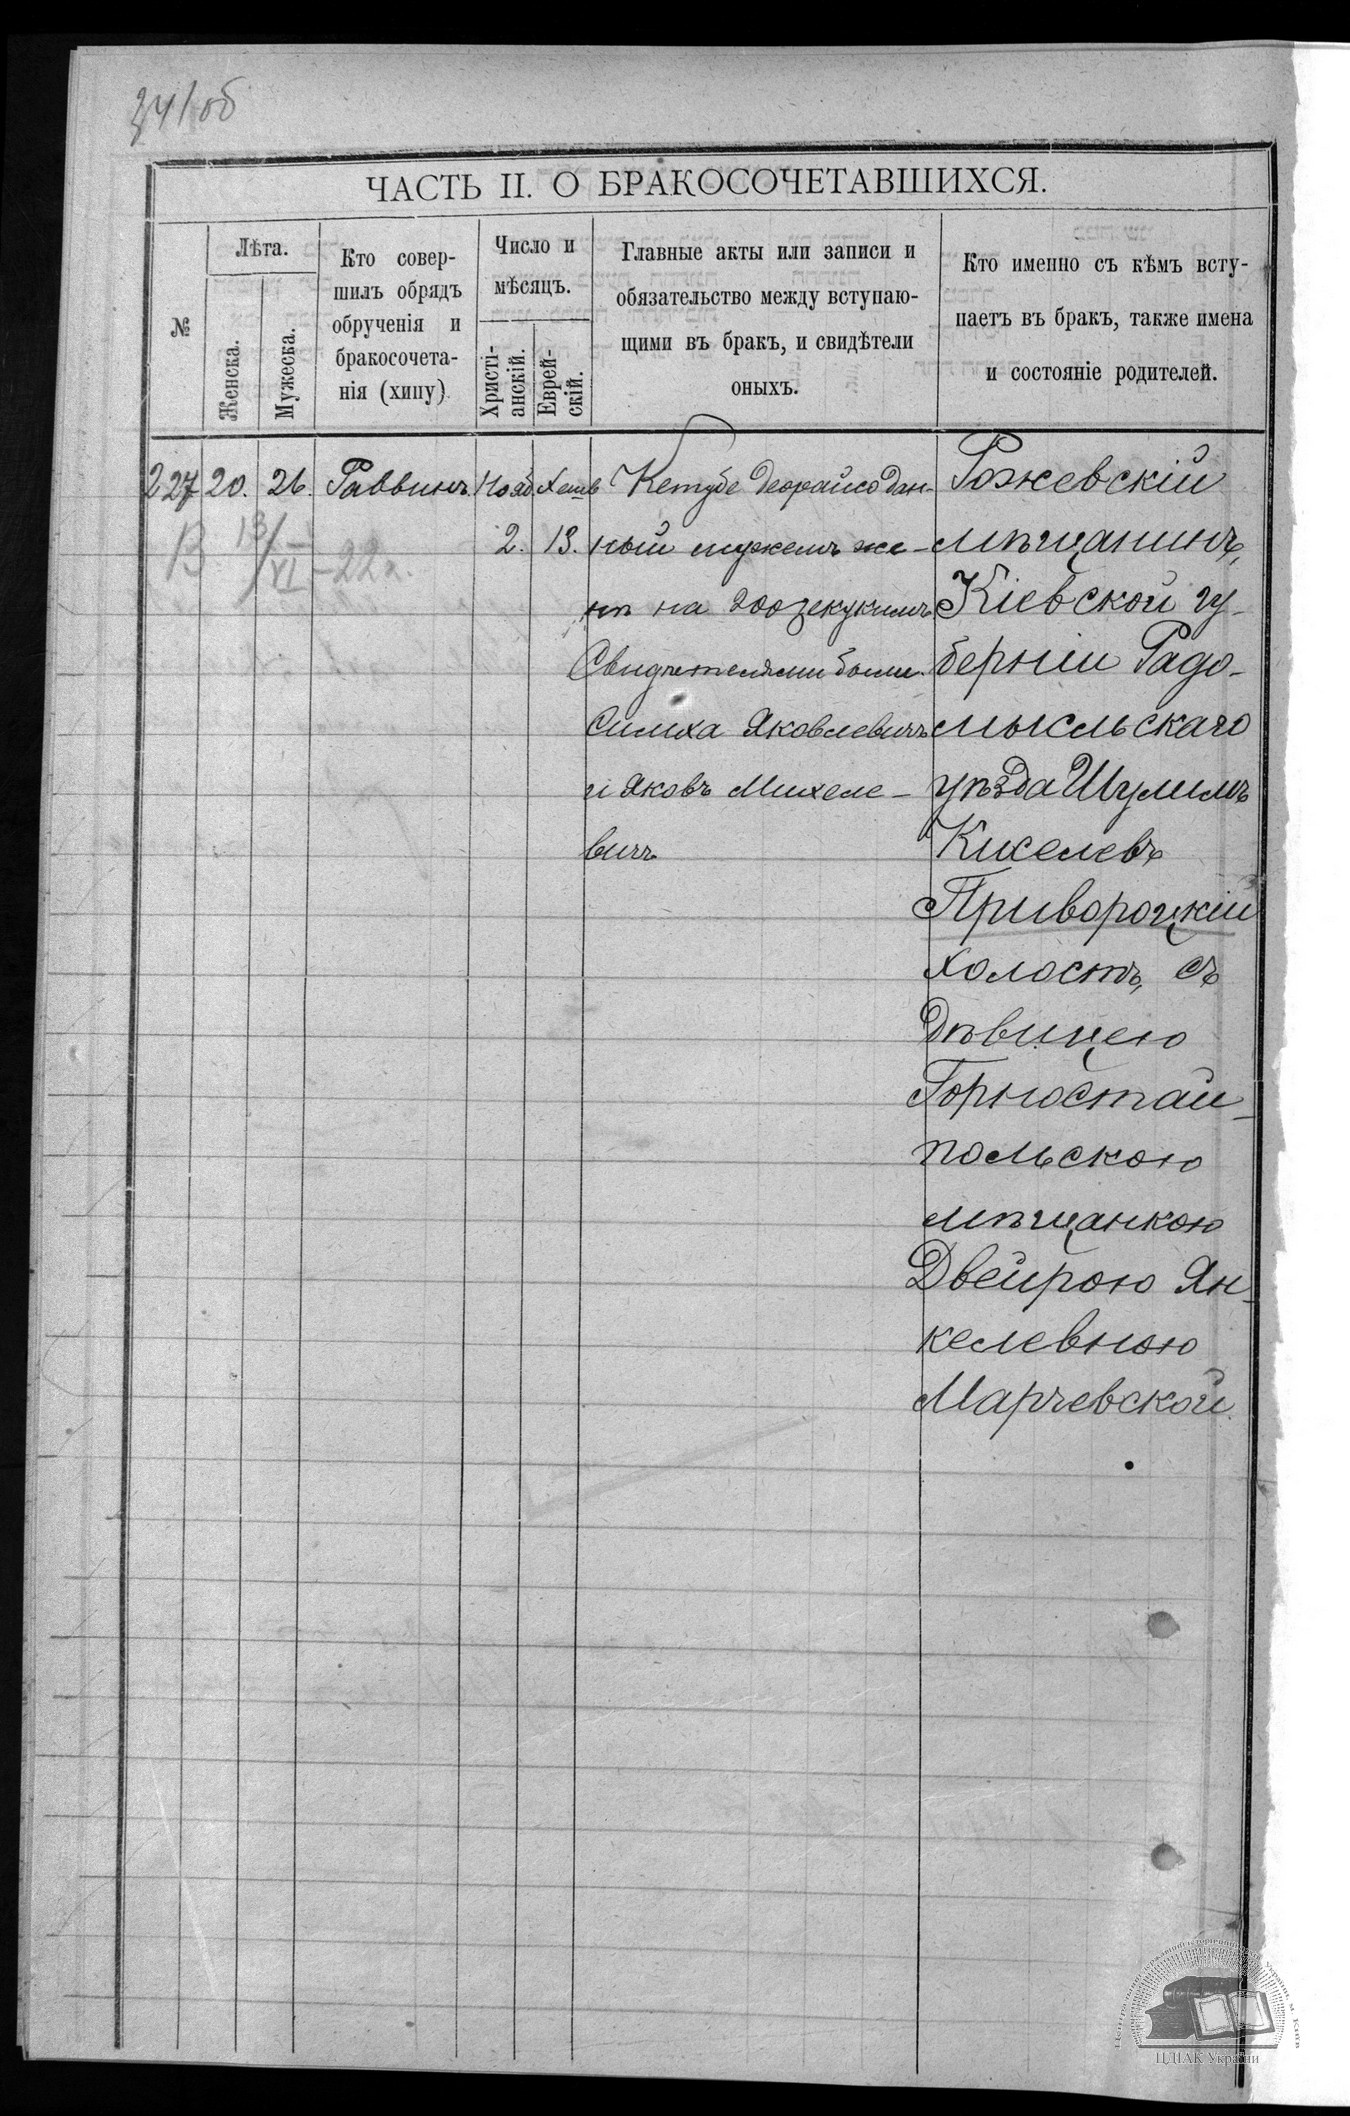 341об
ЧАСТЬ II. О БРАКОСОЧЕТАВШИХСЯ.
№
Лѣта.
Женска.
Мужеска.
Кто совер-
шилъ обрядъ
обрученія и
бракосочета-
нія (хупу)
Число и
мѣсяцъ.
Христі-
анскій.
Еврей-
скій.
Главные акты или записи и
обязательство между вступаю-
щими въ бракъ, и свидѣтели
оныхъ.
Кто именно съ кѣмъ всту-
паетъ въ бракъ, также имена
и состояніе родителей.
227
20.
26.
Раввинъ
Нояб
2.
Хешв
13.
В. 13/XI – 22г.
Кетубе деорайсо дан-
ный мужемъ же-
нѣ на 200 зекукимъ
Свидѣтелями были
Симха Яковлевичъ
и Яковъ Михеле-
вичъ
Рожевскій
мѣщанинъ,
Кіевской гу-
берніи Радо-
мысльскаго
уѣзда Шулимъ
Киселевъ
Привороцкій
холостъ, съ
дѣвицею
Горностай-
польскою
мѣщанкою
Двейрою Ян-
келевною
Марчевской.
ЦДІАК України